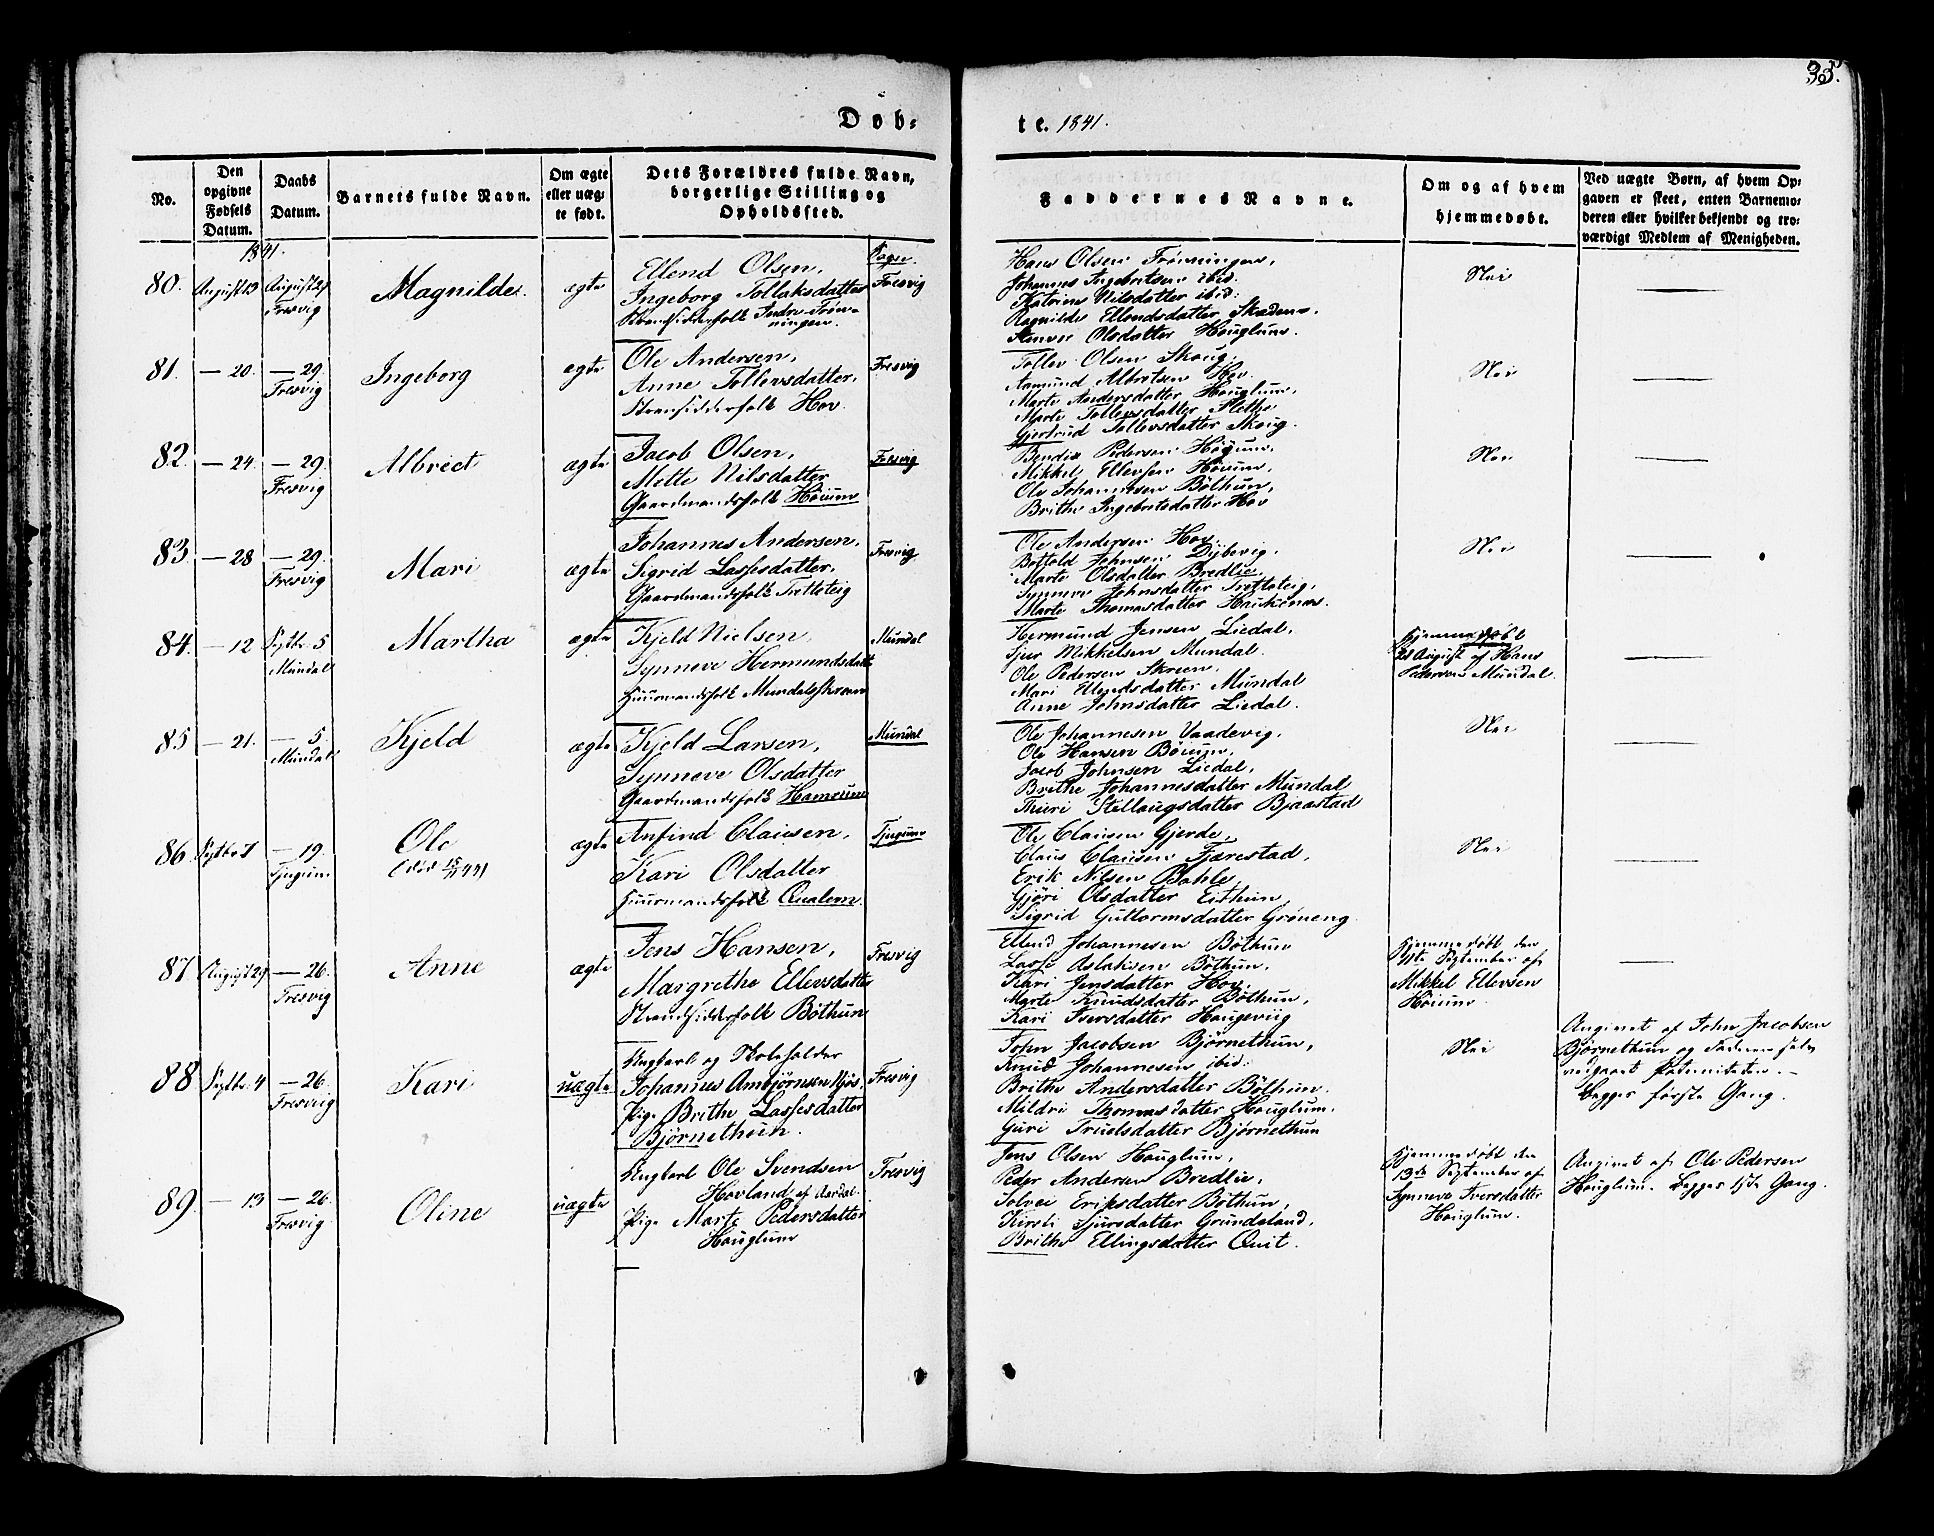 35.
Døb-
te. 1841.
No.
Den opgivne Fødsels Datum.
Daabs Datum.
Barnets fulde Navn.
Om ægte eller uægte født.
Dets Forældres fulde Navn, borgerlige Stilling og Opholdssted.
Faddernes Navne.
Om og af hvem hjemmedøbt.
Ved uægte Børn, af hvem Opgaven er skeet, enten Barnemoderen eller hvilket bekjendt og troværdigt Medlem af Menigheden.
1841.
Sogn.
80.
August 13
August 29 Fresvig
Magnilde.
ægte
Ellend Olsen,
Ingeborg Tollaksdatter
Strandsidderfolk Indre Trønningen.
Fresvig
Hans Olsen Trønningen,
Johannes Ingebritsen ibid.
Katrine Nilsdatter ibid:
Ragnilde Ellendsdatter
Olsdatter Houglum.
Nei
81.
— 20.
— 29. Fresvig
Ingeborg
ægte
Ole Andersen,
Anne Tollevsdatter,
Strandsidderfolk Hov.
Fresvig
Tollev Olsen Skoug,
Aamund Albretsen Hov.
Marte Andersdatter Houglum,
Marte Tollevsdatter Slethe
Gjertrud Tollevsdatter Skoug.
Nei
82.
— 24.
— 29. Fresvig
Albrect
ægte
Jacob Olsen,
Mette Nilsdatter
Gaardmandsfolk Høium
Fresvig
Bendix Pedersen Høyum,
Mikkel Ellevsen Høium,
Ole Johannesen Bøthun,
Brithe Ingebretsdatter Hov
Nei
83.
— 28
— 29. Fresvig
Mari
ægte
Johannes Andersen,
Sigrid Lassesdatter,
Gaardmandsfolk Tretteteig
Fresvig
Ole Andersen Hov.
Botfold Johnsen Dybevig,
Marte Olsdatter Bredlie,
Synneve Johnsdatter Tretteteig,
Marte Thomasdatter
Nei
84.
— 12
Septbr. 5 Mundal
Martha
ægte
Kjeld Nielsen,
Synneve Hermundsdatt
Huusmandsfolk Mundalsskreen
Mundal
Hermund Jensen Liedal,
Sjur Mikkelsen Mundal.
Ole Pedersen Skreen.
Mari Ellendsdatter Mundal
Anne Johnsdatter Liedal.
Hjemmedøbt
21 August af Hans
Pedersen Mundal.
85
— 21.
— 5. Mundal
Kjeld
ægte
Kjeld Larsen,
Synneve Olsdatter
Gaardmandsfolk Hamrum
Mundal
Ole Johannesen Vaadevig,
Ole Hansen Bøium,
Jacob Johnsen Liedal,
Brithe Johannesdatter Mundal
Thuri Stillaugsdatter Bjaastad
Nei
86
Septbr 7
— 19. Tjugum
Ole
(død 15/11 41)
ægte
Anfind Clausen,
Kari Olsdatter
Huusmandsfolk Qualem.
Tjugum
Ole Clausen Gjerde,
Claus Clausen Fjærestad,
Erik Nilsen Bahle,
Gjøri Olsdatter Eithun,
Sigrid Guttormsdatter Grøneng.
Nei
87.
August 29
— 26. Fresvig
Anne
ægte
Jens Hansen,
Margrethe Ellevsdatter
Strandsidderfolk Bøthun
Fresvig
Ellend Johannesen Bøthun
Lasse Aslaksen Bøthun,
Kari Jensdatter Hov,
Marte Knudsdatter Bøthun,
Kari Iversdatter Hougeviig
Hjemmedøbt den
September af
Mikkel Ellevsen
Høium.
88
Septbr. 4
— 26. Fresviig
Kari
uægte
Ungkarl og Skoleholder
Johannes Ambjørnsen Njøs
Pige Brithe Lassesdatter
Bjørnethun.
Fresvig
John Jacobsen Bjørnethun,
Knud Johannesen ibid:
Brithe Andersdatter Bøthun.
Mildri Thomasdatter Houglum.
Guri Truelsdatter Bjørnethun
Nei
Angivet af John Jacobsen
Bjørnethun og Faderen selv
vedgaaet Paterniteten. —
Begges første Gang.
89.
— 13
— 26. Fresvig
Oline
uægte
Ungkarl Ole Svendsen
Hovland af Aardal.
Pige Marte Pedersdatter
Houglum
Fresvig
Jens Olsen Houglum,
Peder Andersen Bredlie,
Solvei Eriksdatter Bøthun,
Kirsti Sjursdatter Grindsland,
Brithe Ellingsdatter Qvit.
Hjemmedøbt den
13de September af
Synneve Iversdatter
Houglum.
Angivet af Ole Pedersen
Houglum. Begges 1ste Gang.